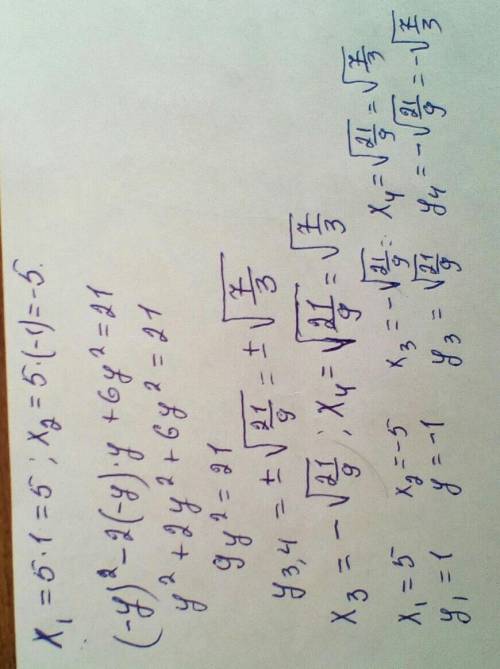 x₁ = 5·1 = 5 ; x₂ = 5·(-1) = -5.
(-y)² - 2(-y)·y + 6y² = 21
y² + 2y² + 6y² = 21
9y² = 21
y₃,₄ = ±√(21/9) = ±√(7/3)
x₃ = -√(21/9) ; x₄ = √(21/9) = √(7/3)
x₁ = 5 x₂ = -5 x₃ = -√(21/9) ; x₄ = √(21/9) = √(7/3)
y₁ = 1 y = -1 y₃ = √(21/9) y₄ = -√(21/9) = -√(7/3)